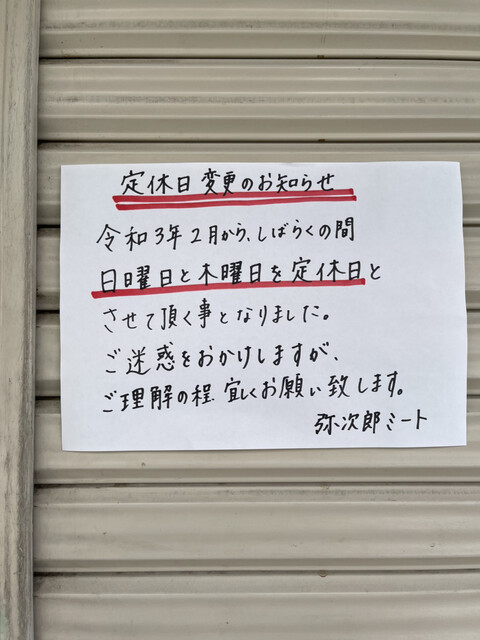 定休日変更のお知らせ
令和3年2月から、しばらくの間
日曜日と木曜日を定休日と
させて頂く事となりました。
ご迷惑をおかけしますが、
ご理解の程、宜しくお願い致します。
弥次郎ミート